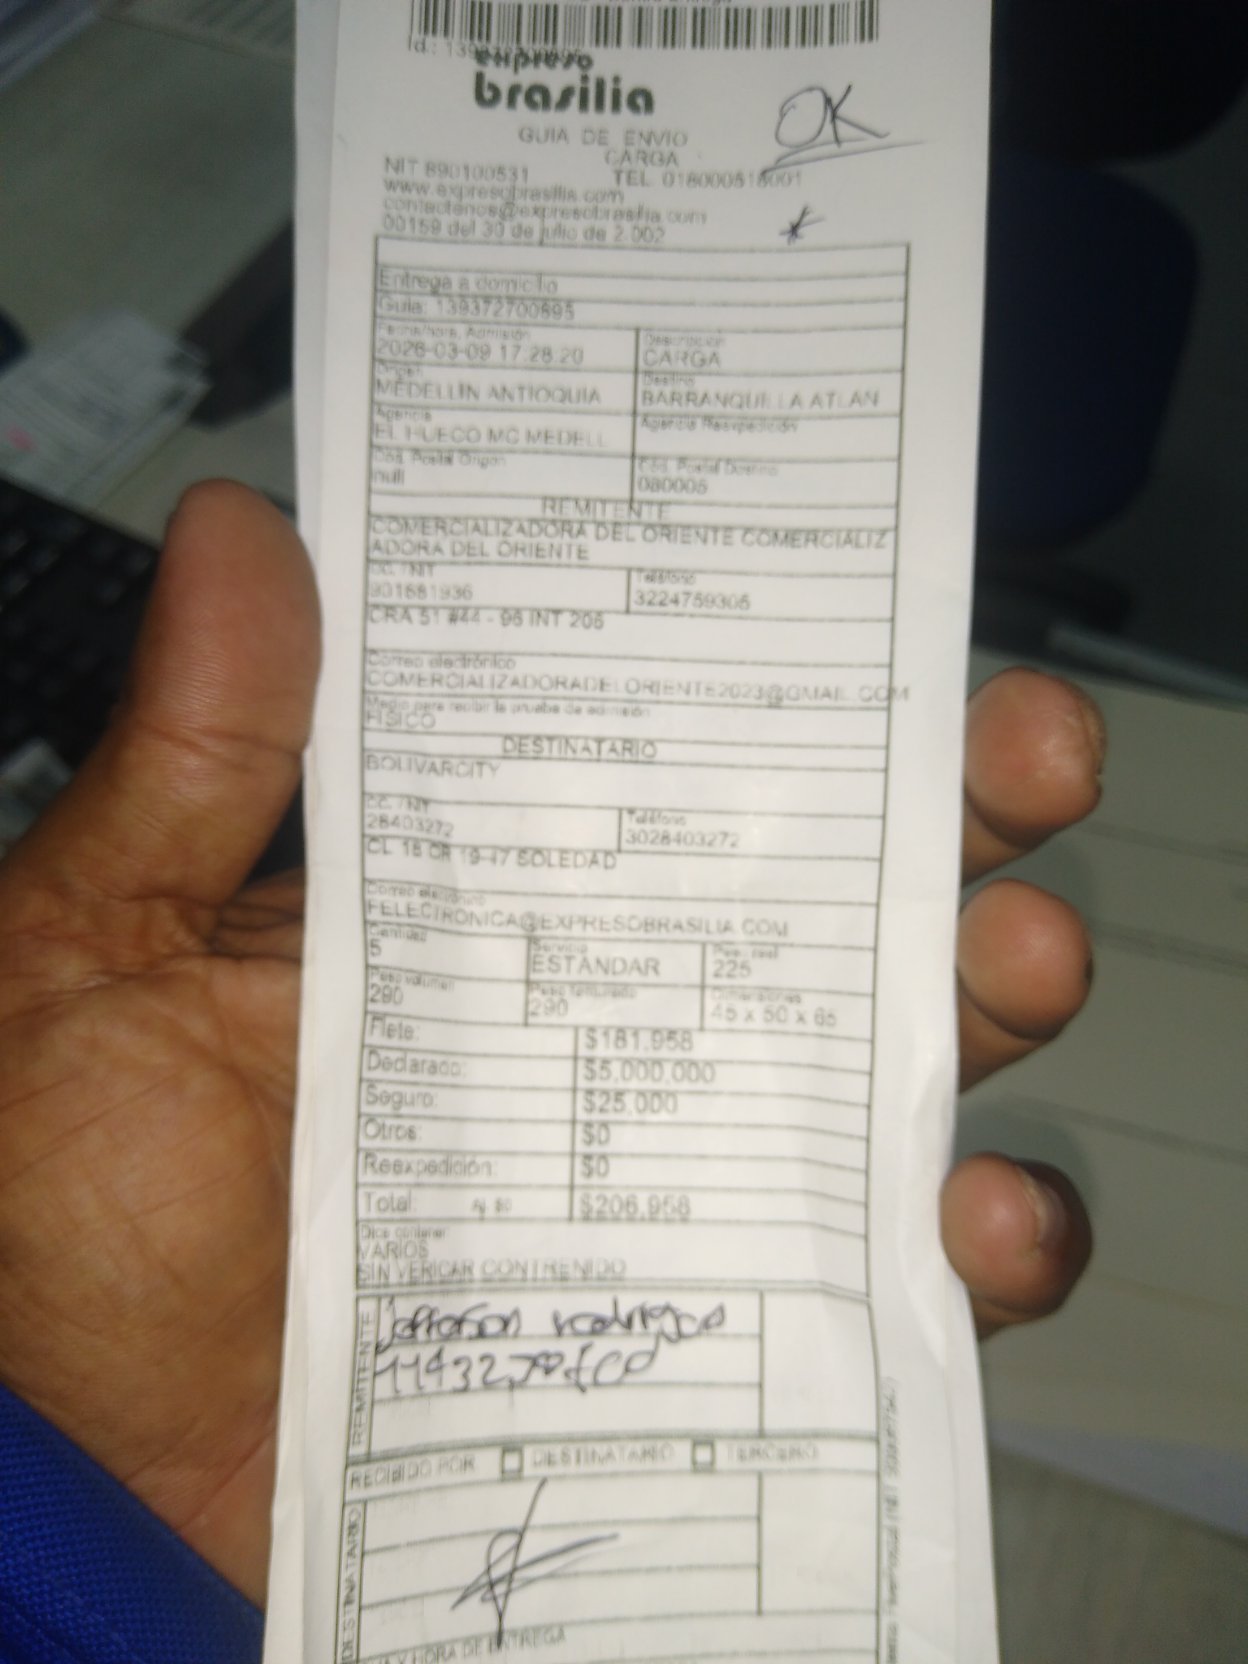 expreso
brasilia
OK
GUIA DE ENVIO
CARGA
NIT 890100531 TEL 018000518001
www.expresobrasilia.com
contactenos@expresobrasilia.com
00159 del 30 de julio de 2.002
Entrega a domicilio
Guia: 139372700695
Fecha/hora, Admisión Descripción
2026-03-09 17:28:20 CARGA
Origen Destino
MEDELLIN ANTIOQUIA BARRANQUILLA ATLAN
Agencia Agencia Reexpedición
EL HUECO MC MEDELL
Cód. Postal Origen Cód. Postal Destino
null 080005
REMITENTE
COMERCIALIZADORA DEL ORIENTE COMERCIALIZ
ADORA DEL ORIENTE
CC. / NIT Teléfono
901681936 3224759305
CRA 51 #44 - 96 INT 206
Correo electrónico
COMERCIALIZADORADELORIENTE2023@GMAIL.COM
Medio para recibir la prueba de admisión
FISICO
DESTINATARIO
BOLIVARCITY
CC. / NIT Teléfono
28403272 3028403272
CL 18 CR 19-47 SOLEDAD
Correo electrónico
FELECTRONICA@EXPRESOBRASILIA.COM
Cantidad Servicio Peso real
5 ESTANDAR 225
Peso volumen Peso facturado Dimensiones
290 290 45 x 50 x 65
Flete: $181,958
Declarado: $5,000,000
Seguro: $25,000
Otros: $0
Reexpedición: $0
Total: Aj. $0 $206,958
Dice contener:
VARIOS
SIN VERICAR CONTRENIDO
REMITENTE
Jefferson rodriguez
RECIBIDO POR DESTINATARIO TERCERO
DESTINATARIO
Y HORA DE ENTREGA